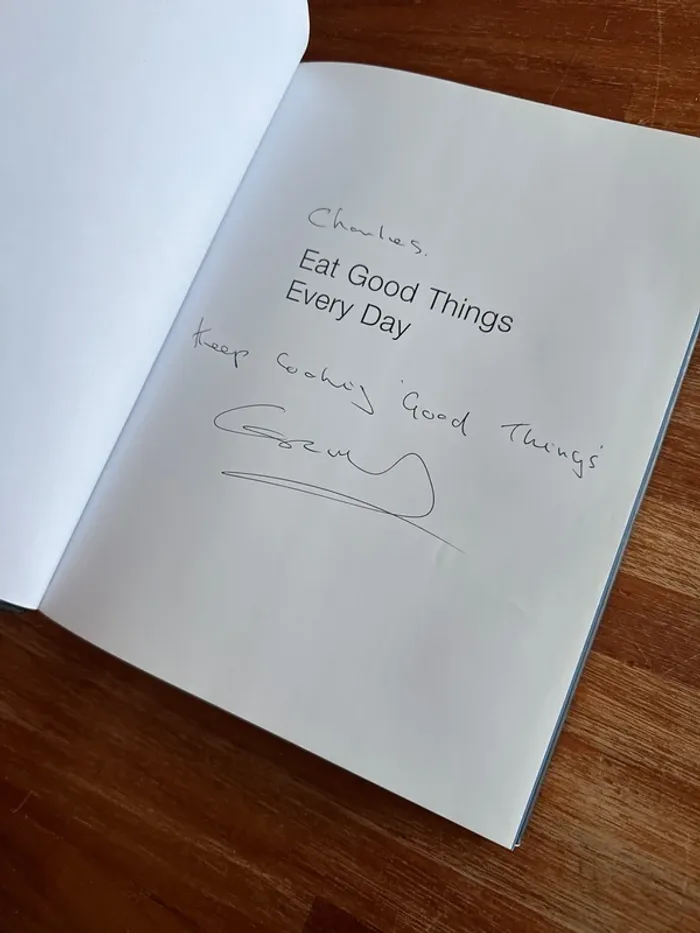 Charles.
Eat Good Things
Every Day
Keep cooking 'Good Things'